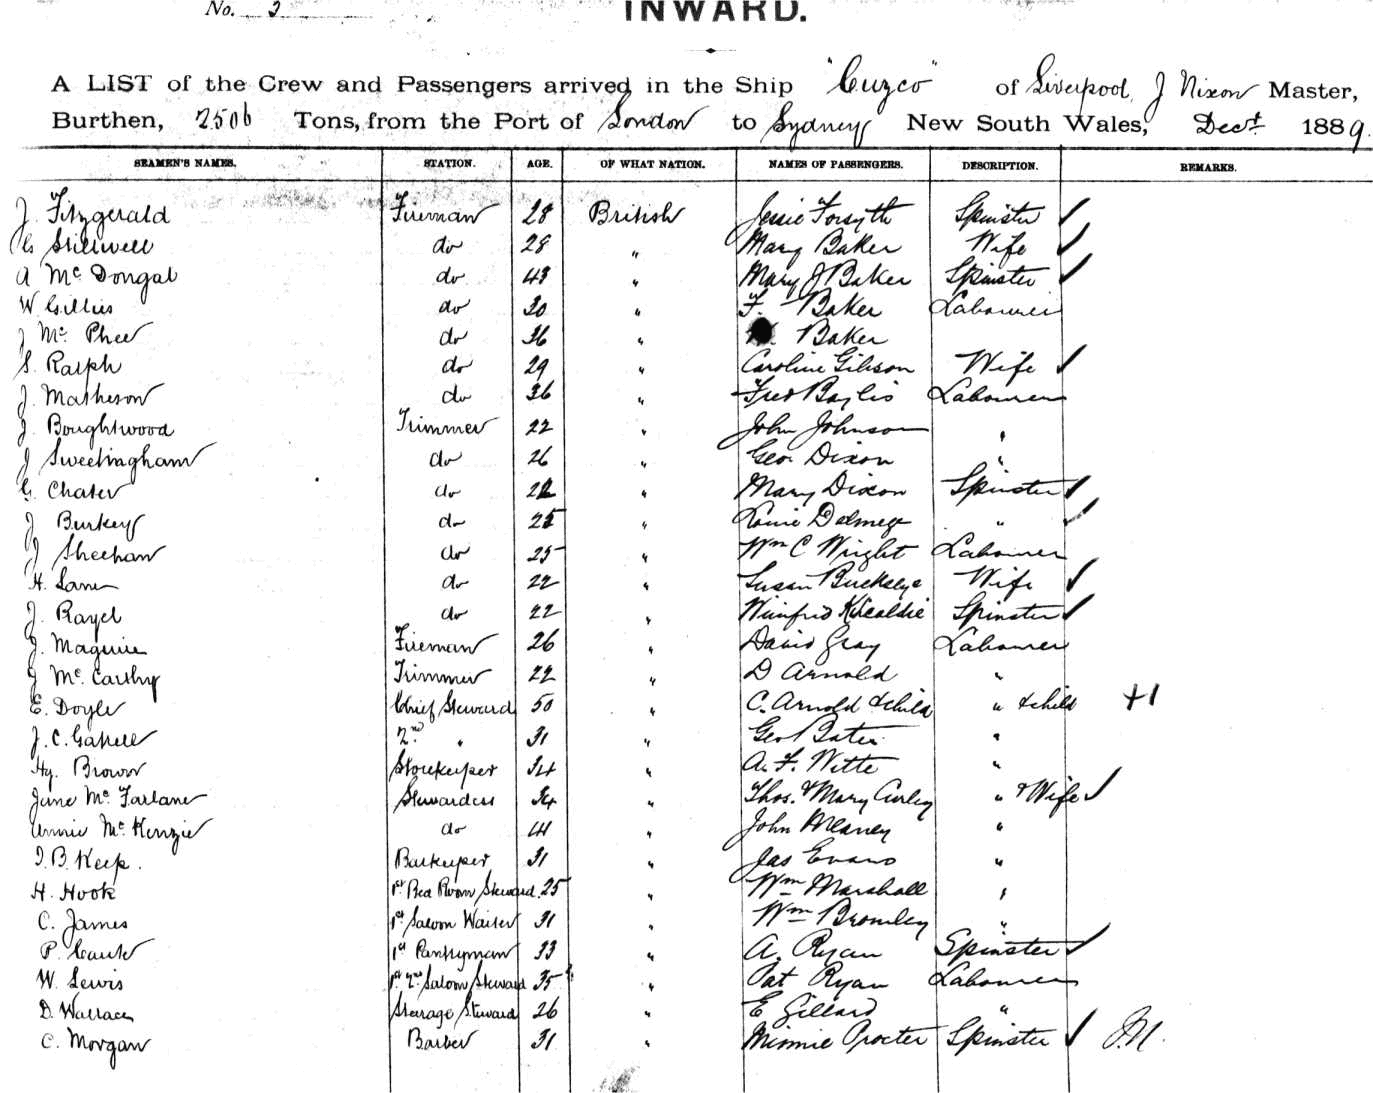 No. 3
INWARD.
A LIST of the Crew and Passengers arrived in the Ship "Cuzco" of Liverpool, J Nixon Master,
Burthen, 2506 Tons, from the Port of London to Sydney New South Wales, Decr 1889.
SEAMEN'S NAMES. STATION. AGE. OF WHAT NATION. NAMES OF PASSENGERS. DESCRIPTION. REMARKS.
J. Fitzgerald Fireman 28 British Jessie Forsyth Spinster ✓
Stillwell do 28 " Mary Baker Wife ✓
A Mc Dongal do 43 " Mary J Baker Spinster ✓
W Gillies do 30 " F. Baker Labourer
J Mc Phee do 36 " Baker
S. Ralph do 29 " Caroline Gibson Wife ✓
J. Matheson do 36 " Fred Baylis Labourer
J. Boughtwood Trimmer 22 " John Johnson "
J Sweetingham do 26 " Geo. Dixon "
G. Chater do 22 " Mary Dixon Spinster ✓
J Burkey do 25 " Dalmege " ✓
J Sheehan do 25 " Wm C Wright Labourer
H. Lane do 22 " Susan Wife ✓
J. Rayel do 22 " Winifrid Kircaldie Spinster ✓
J. Maguire Fireman 26 " David Gray Labourer
J Mc Carthy Trimmer 22 " D Arnold "
E. Doyle Chief Steward 50 " C. Arnold & child " & child +1
J. C. 2nd " 31 " Geo Bates "
Hy. Brown Storekeeper 34 " A. F. Witte "
Jane Mc Farlane Stewardess 34 " Thos. & Mary Curley " & Wife ✓
Annie Mc Kenzie do 44 " John Meaney "
J. B. Keep. Barkeeper 31 " Jas Evans "
H. Hook 1st Bed Room Steward 25 " Wm Marshall "
C. James 1st Saloon Waiter 31 " Wm Bromley "
P. 1st Pantryman 33 " A. Ryan Spinster ✓
W. Lewis 1st 2nd Saloon Steward 35 " Pat Ryan Labourer
D. Wallace Stearage Steward 26 " E Gillard "
C. Morgan Barber 31 " Minnie Procter Spinster ✓